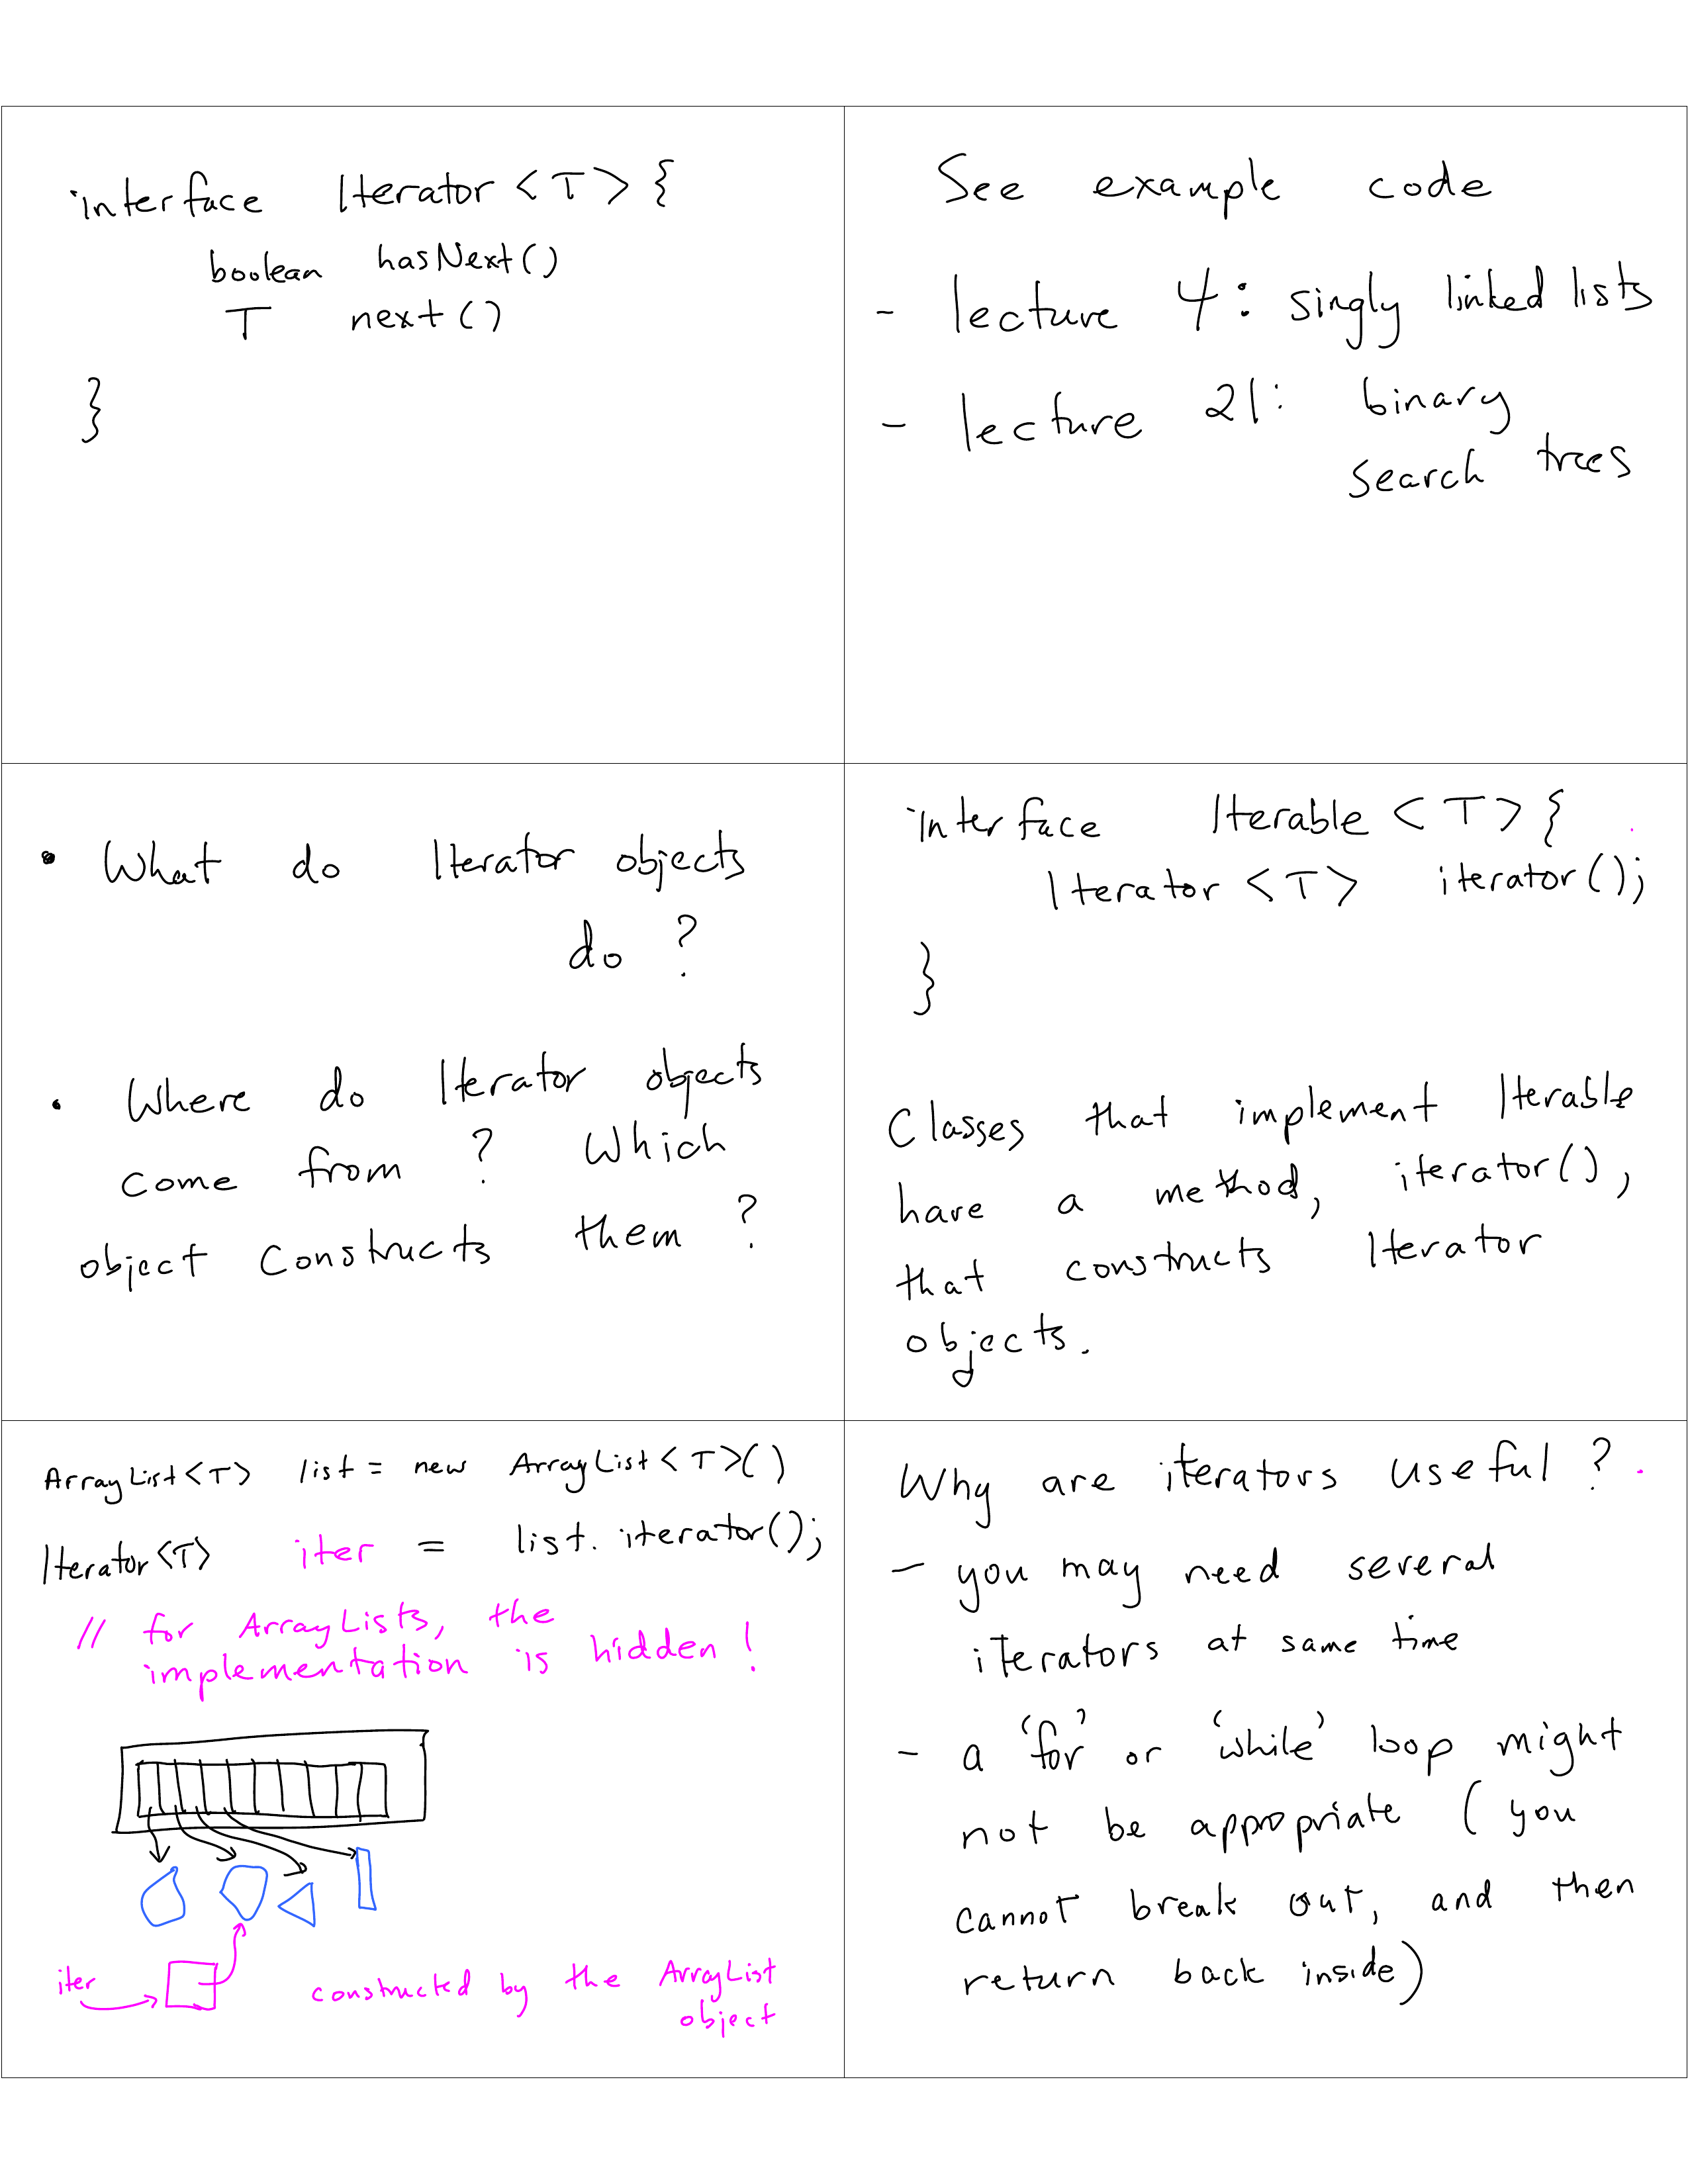 interface Iterator <T> {
boolean hasNext()
T next()
}
See example code
- lecture 4: singly linked lists
- lecture 21: binary
search trees
• What do Iterator objects
do ?
• Where do Iterator objects
come from ? Which
object constructs them ?
interface Iterable <T> {
Iterator <T> iterator();
}
Classes that implement Iterable
have a method, iterator(),
that constructs Iterator
objects.
ArrayList<T> list = new ArrayList<T>()
Iterator<T> iter = list.iterator();
// for ArrayLists, the
implementation is hidden !
iter
constructed by the ArrayList
object
Why are iterators useful ?
- you may need several
iterators at same time
- a 'for' or 'while' loop might
not be appropriate (you
cannot break out, and then
return back inside)